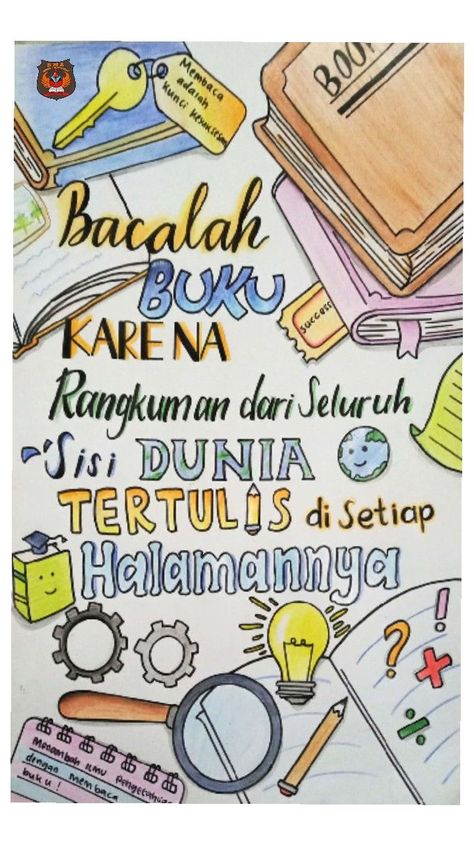 SMA
Membaca
adalah
kunci kesuksesan
BOOK
Bacalah
BUKU
KARENA
success
Rangkuman dari Seluruh
Sisi DUNIA
TERTULIS di Setiap
Halamannya
? !
×
÷
Menambah Ilmu Pengetahuan
dengan membaca
buku!